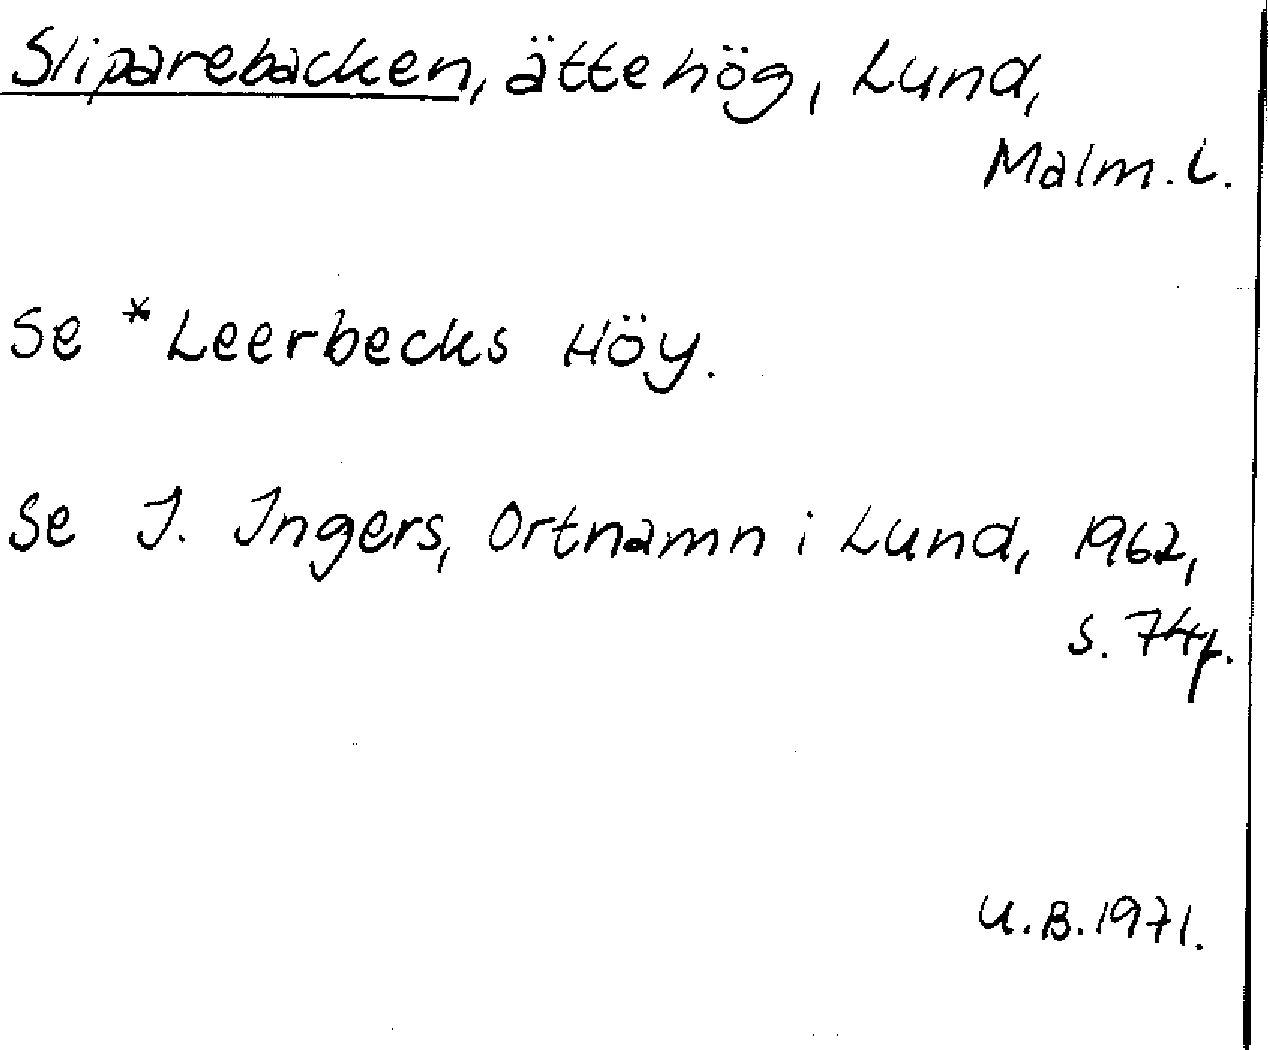 Sliparebacken, ättehög, Lund,
Malm. L.
Se *Leerbecks Höy.
Se I. Ingers, Ortnamn i Lund, 1962,
s. 74f.
U.B. 1971.